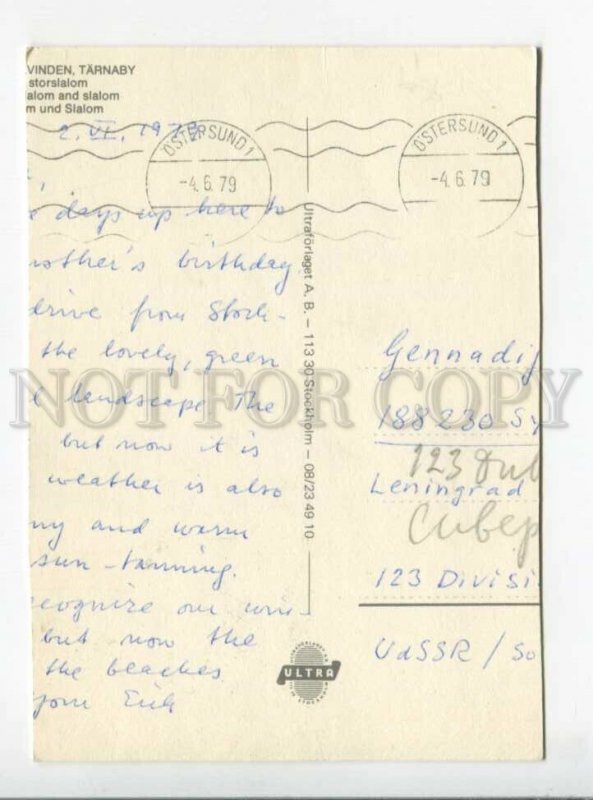 VINDEN, TÄRNABY
storslalom
alom and slalom
m und Slalom
2. VI. 1979
ÖSTERSUND 1
-4.6.79
ÖSTERSUND 1
-4.6.79
days up here to
mother's birthday.
drive from Stock-
the lovely, green
landscape. The
but now it is
weather is also
ny and warm
sun-tanning.
ecognize our
but now the
the beaches
Erik
Ultraförlaget A. B. – 113 30 Stockholm – 08/23 49 10
Gennadij
188230 Sy
123 Див
Leningrad
Сивер
123 Divisi
UdSSR / So
ULTRA
NOT FOR COPY